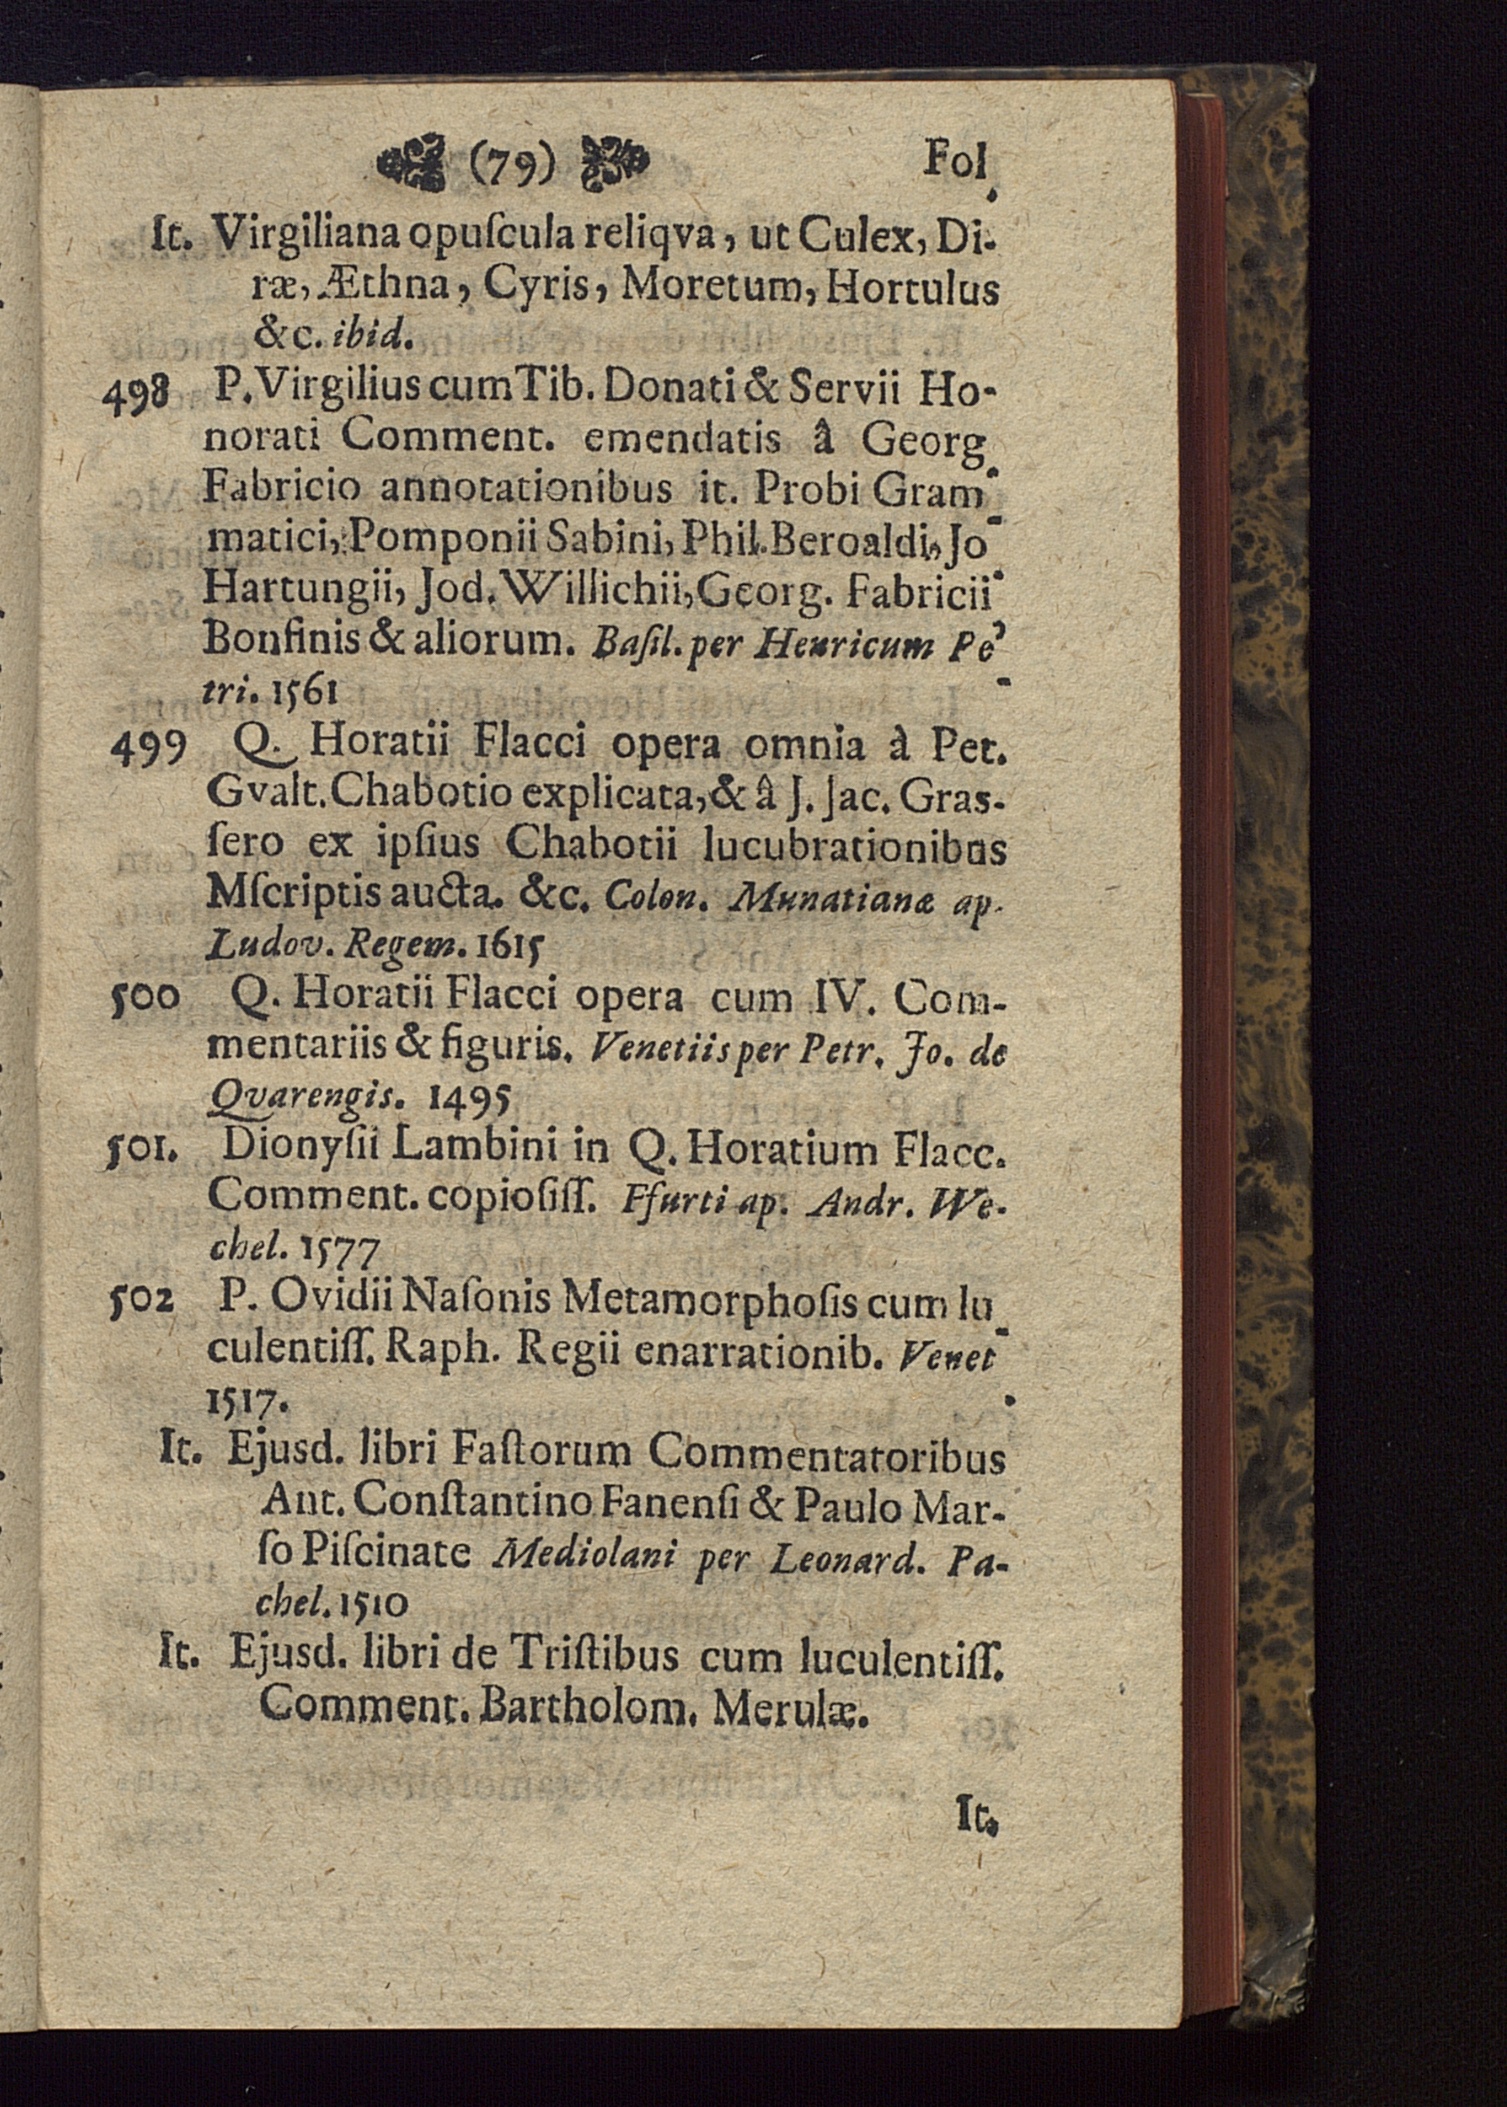 (79) Fol.
It. Virgiliana opuſcula reliqva, ut Culex, Di-
ræ, Æthna, Cyris, Moretum, Hortulus
&c. ibid.
498 P. Virgilius cum Tib. Donati & Servii Ho-
norati Comment. emendatis â Georg.
Fabricio annotationibus it. Probi Gram-
matici, Pomponii Sabini, Phil. Beroaldi, Jo.
Hartungii, Jod. Willichii, Georg. Fabricii,
Bonfinis & aliorum. Baſil. per Henricum Pe-
tri. 1561
499 Q. Horatii Flacci opera omnia à Pet.
Gvalt. Chabotio explicata, & â J. Jac. Gras-
ſero ex ipſius Chabotii lucubrationibus
Mſcriptis aucta. &c. Colon. Munatianæ ap.
Ludov. Regem. 1615
500 Q. Horatii Flacci opera cum IV. Com-
mentariis & figuris. Venetiis per Petr. Jo. de
Qvarengis. 1495
501. Dionyſii Lambini in Q. Horatium Flacc.
Comment. copioſiſſ. Ffurti ap. Andr. We-
chel. 1577
502 P. Ovidii Naſonis Metamorphoſis cum lu-
culentiſſ. Raph. Regii enarrationib. Venet.
1517.
It. Ejusd. libri Faſtorum Commentatoribus
Ant. Conſtantino Fanenſi & Paulo Mar-
ſo Piſcinate Mediolani per Leonard. Pa-
chel. 1510
It. Ejusd. libri de Triſtibus cum luculentiſſ.
Comment. Bartholom. Merulæ.
It.